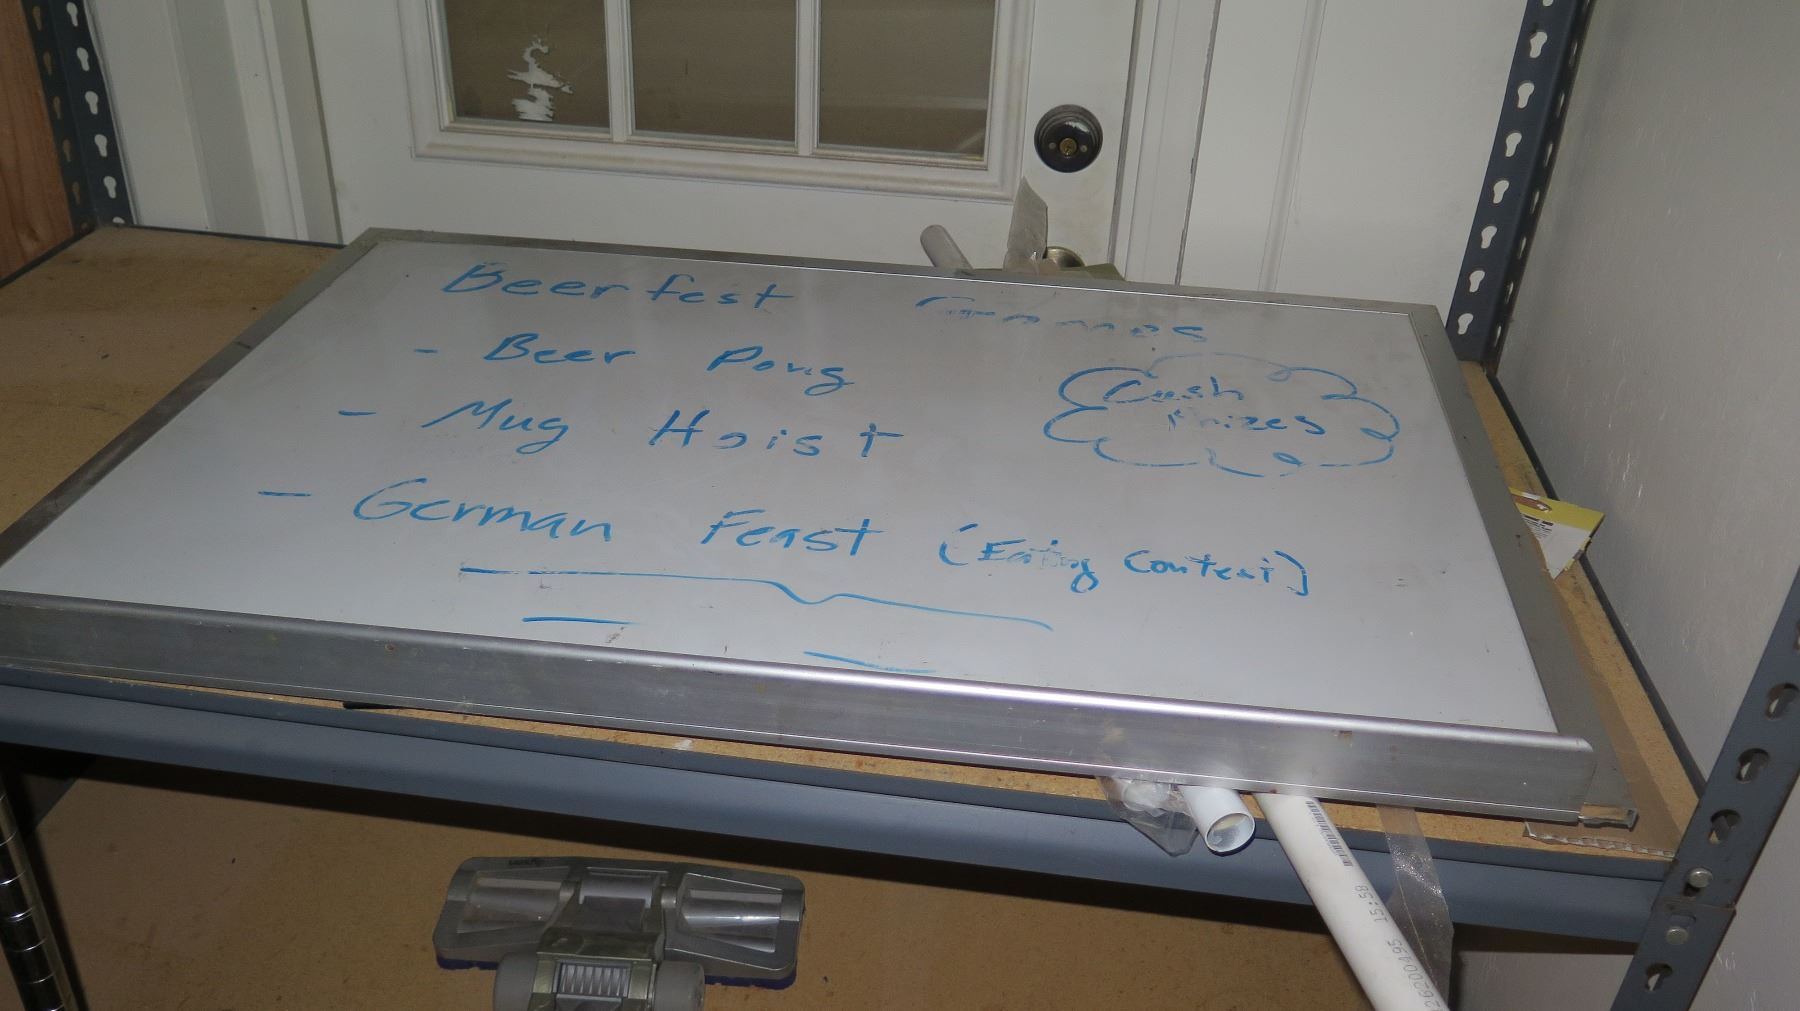 Beerfest Games
- Beer Pong
- Mug Hoist
- German Feast (Eating Contest)
Cash
Prizes
26200495 15:58